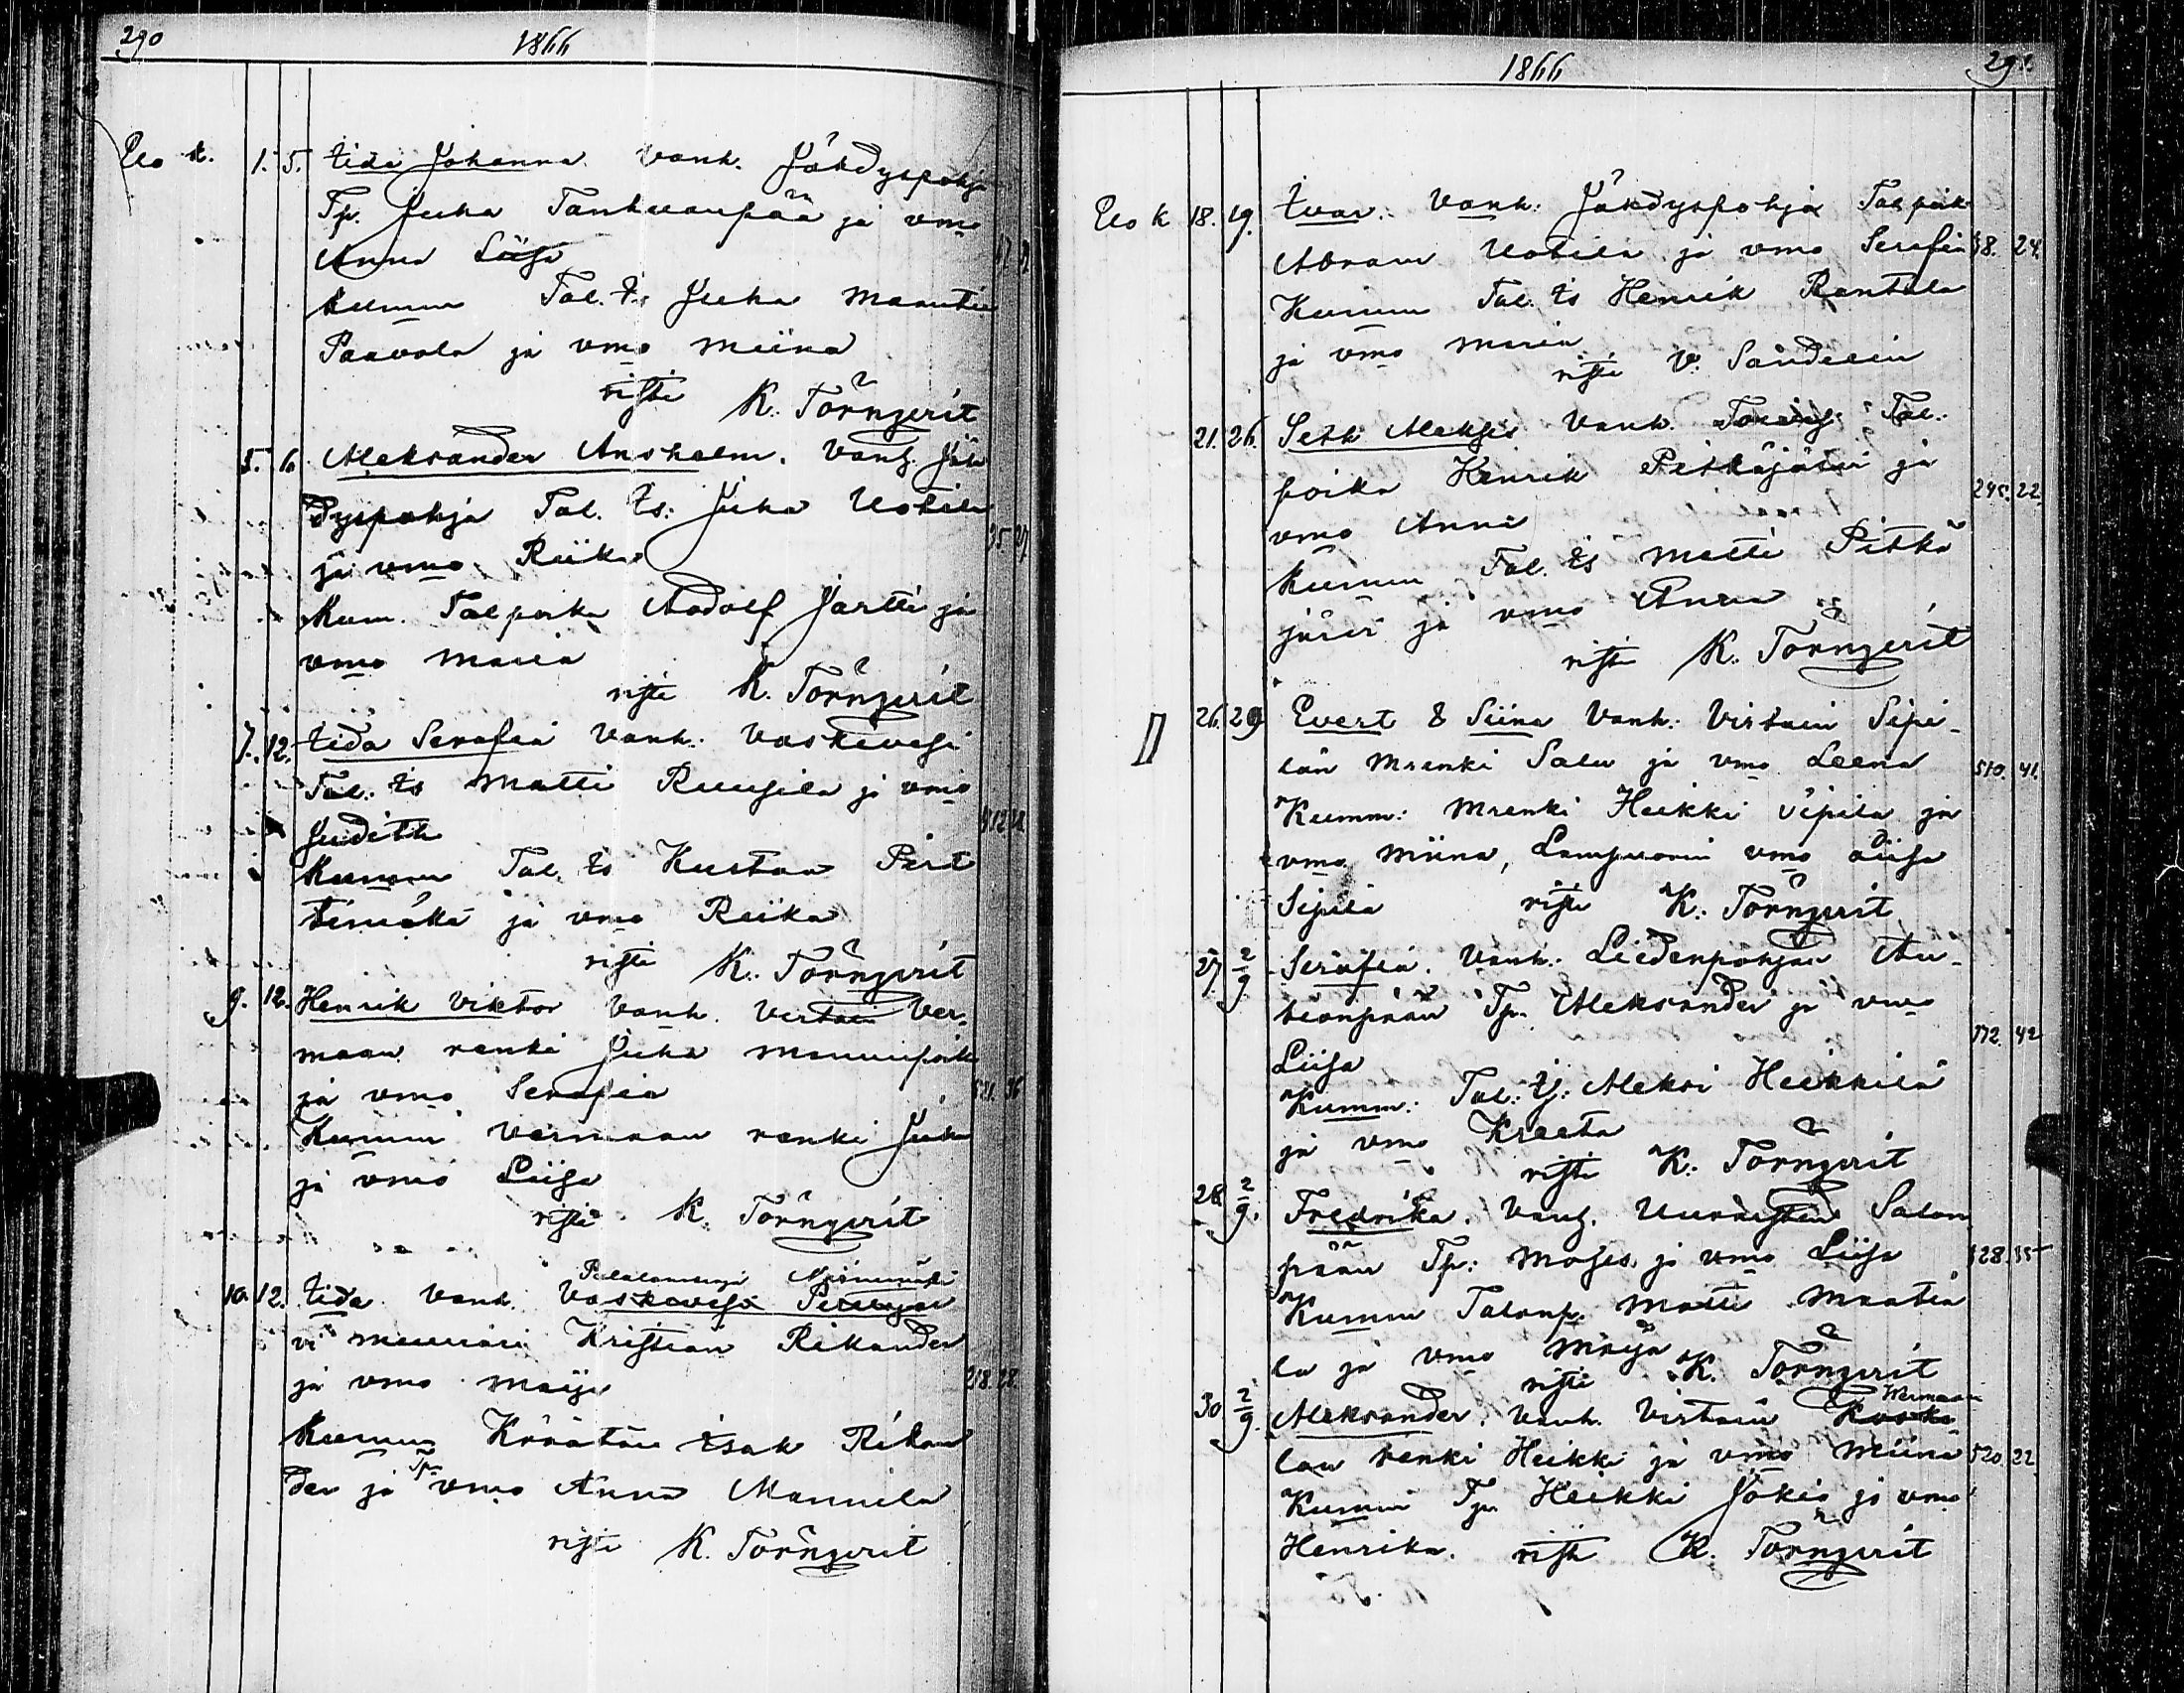 290 1866
Elo k. 1. 5. Iida Johanna. Vanh. Jähdyspohja
Tp. Juha Tanhuanpää ja vmo
Anna Liisa
Kumm Tal. Is Juha Mannila
Paavola ja vmo Miina
risti K. Törnqvist
5. 6. Aleksander Anshelm. Vanh. Jäh
dyspohja Tal. Is: Juha Uotila 35 27
ja vmo Riika
Kum. Talpoika Aadolf Jartti ja
vmo Maria
risti K. Törnqvist
7. 12. Iida Serafia Vanh. Vaskivesi
Tal. Is Matti Ruusila ja vmo
Judith
Kumm Tal. Is Kustaa Pirt
timäki ja vmo Riika
risti K. Törnqvist
9. 12. Henrik Viktor Vanh. Virtain Ver-
maan renki Juha
ja vmo Serafia 521. 36
Kumm Vermaan renki Juha
ja vmo Liisa
risti K. Törnqvist
10. 12. Iida Vanh. Vaskivesi
muurari Kristian Rikander
ja vmo Maija 218 28
Kumm Isak Rikan
der ja Tp. vmo Anna Mannila
risti K. Törnqvist
1866 291
Elo k 18. 19. Ivar. Vanh: Jähdyspohja Talpoik
Abram Uotila ja vmo Serafia 38. 24.
Kumm Tal. Is Henrik Rantala
ja vmo Maria
risti V. Sandelin
21. 26. Seth Aleksis Vanh. Tal.
poika Henrik Pitkäjärvi ja 245. 22
vmo Anni
Kumm Tal. Is Matti Pitkä
järvi ja vmo Anna
risti K. Törnqvist
26. 29 Evert & Siina Vanh: Virtain Sipi-
län Mrenki Salu ja vmo Leena 510. 41.
Kumm: Mrenki Heikki Sipilä ja
vmo Miina, vmo Liisa
Sipilä risti K. Törnqvist
27. 2/9 Serafia. Vanh: Liedenpohjan Au-
tionpään Tp. Aleksander ja vmo
172. 42
Liisa
Kumm: Tal: Ij: Aleksi Heikkilä
ja vmo Kreeta
risti K. Törnqvist
28. 2/9. Fredrika. Vanh. Salon
pään Tp: Moses ja vmo Liisa 128. 35
Kumm Talonp. Matti Mantti
la ja vmo Maija
risti K. Törnqvist
30 2/9. Aleksander. Vanh. Virtain Wermaan
lan renki Heikki ja vmo Miina 520. 22
Kumm Tp. Heikki Jokio ja vmo
Henrika. risti K. Törnqvist